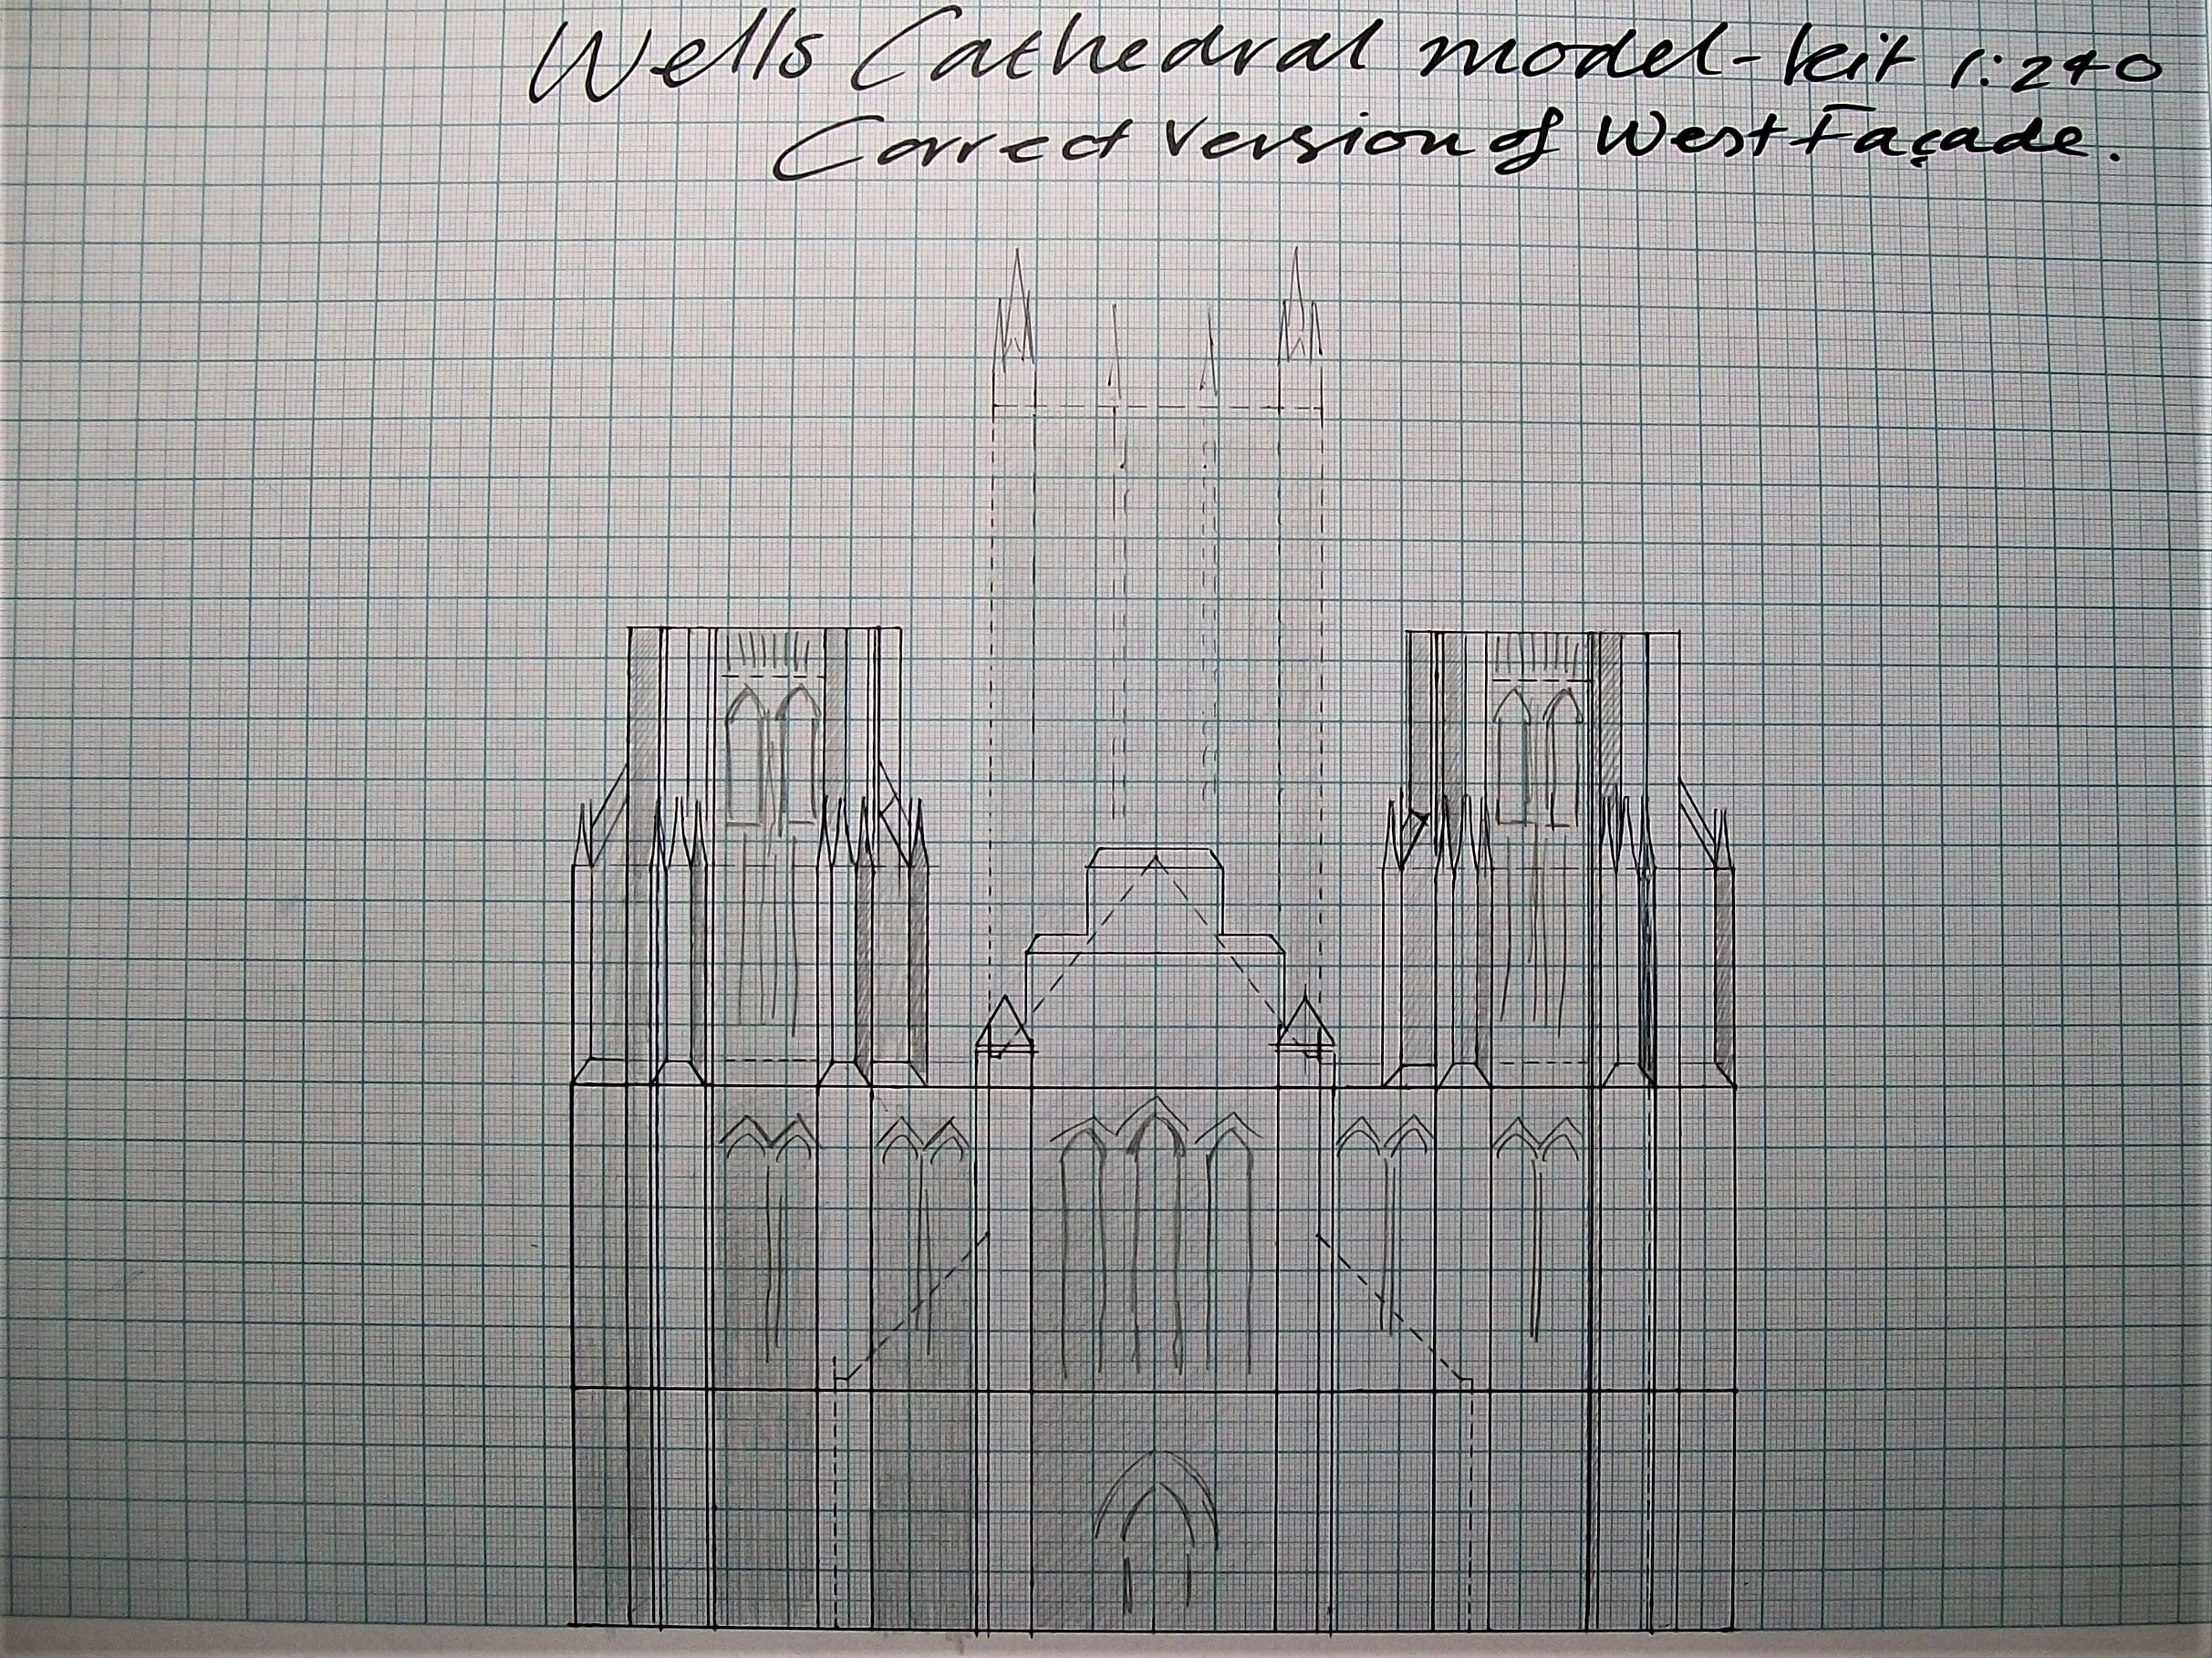 Wells Cathedral model-kit 1:240
Correct Version of West Façade.